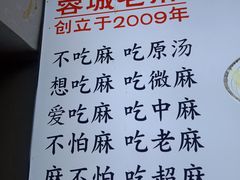 蓉城老麻
创立于2009年
不吃麻 吃原汤
想吃麻 吃微麻
爱吃麻 吃中麻
不怕麻 吃老麻
麻不怕 吃超麻